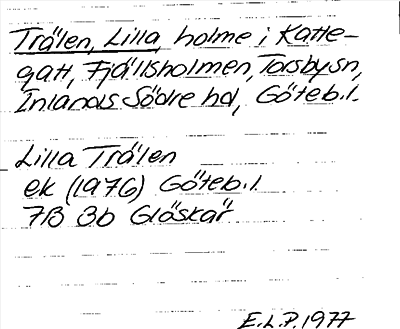 Trälen, Lilla, holme i Katte-
gatt, Fjällsholmen, Torsby sn,
Inlands Södre hd, Göteb.l.
Lilla Trälen
ek (1976) Göteb.l.
7B 3b Glöskär
E.L.P. 1977